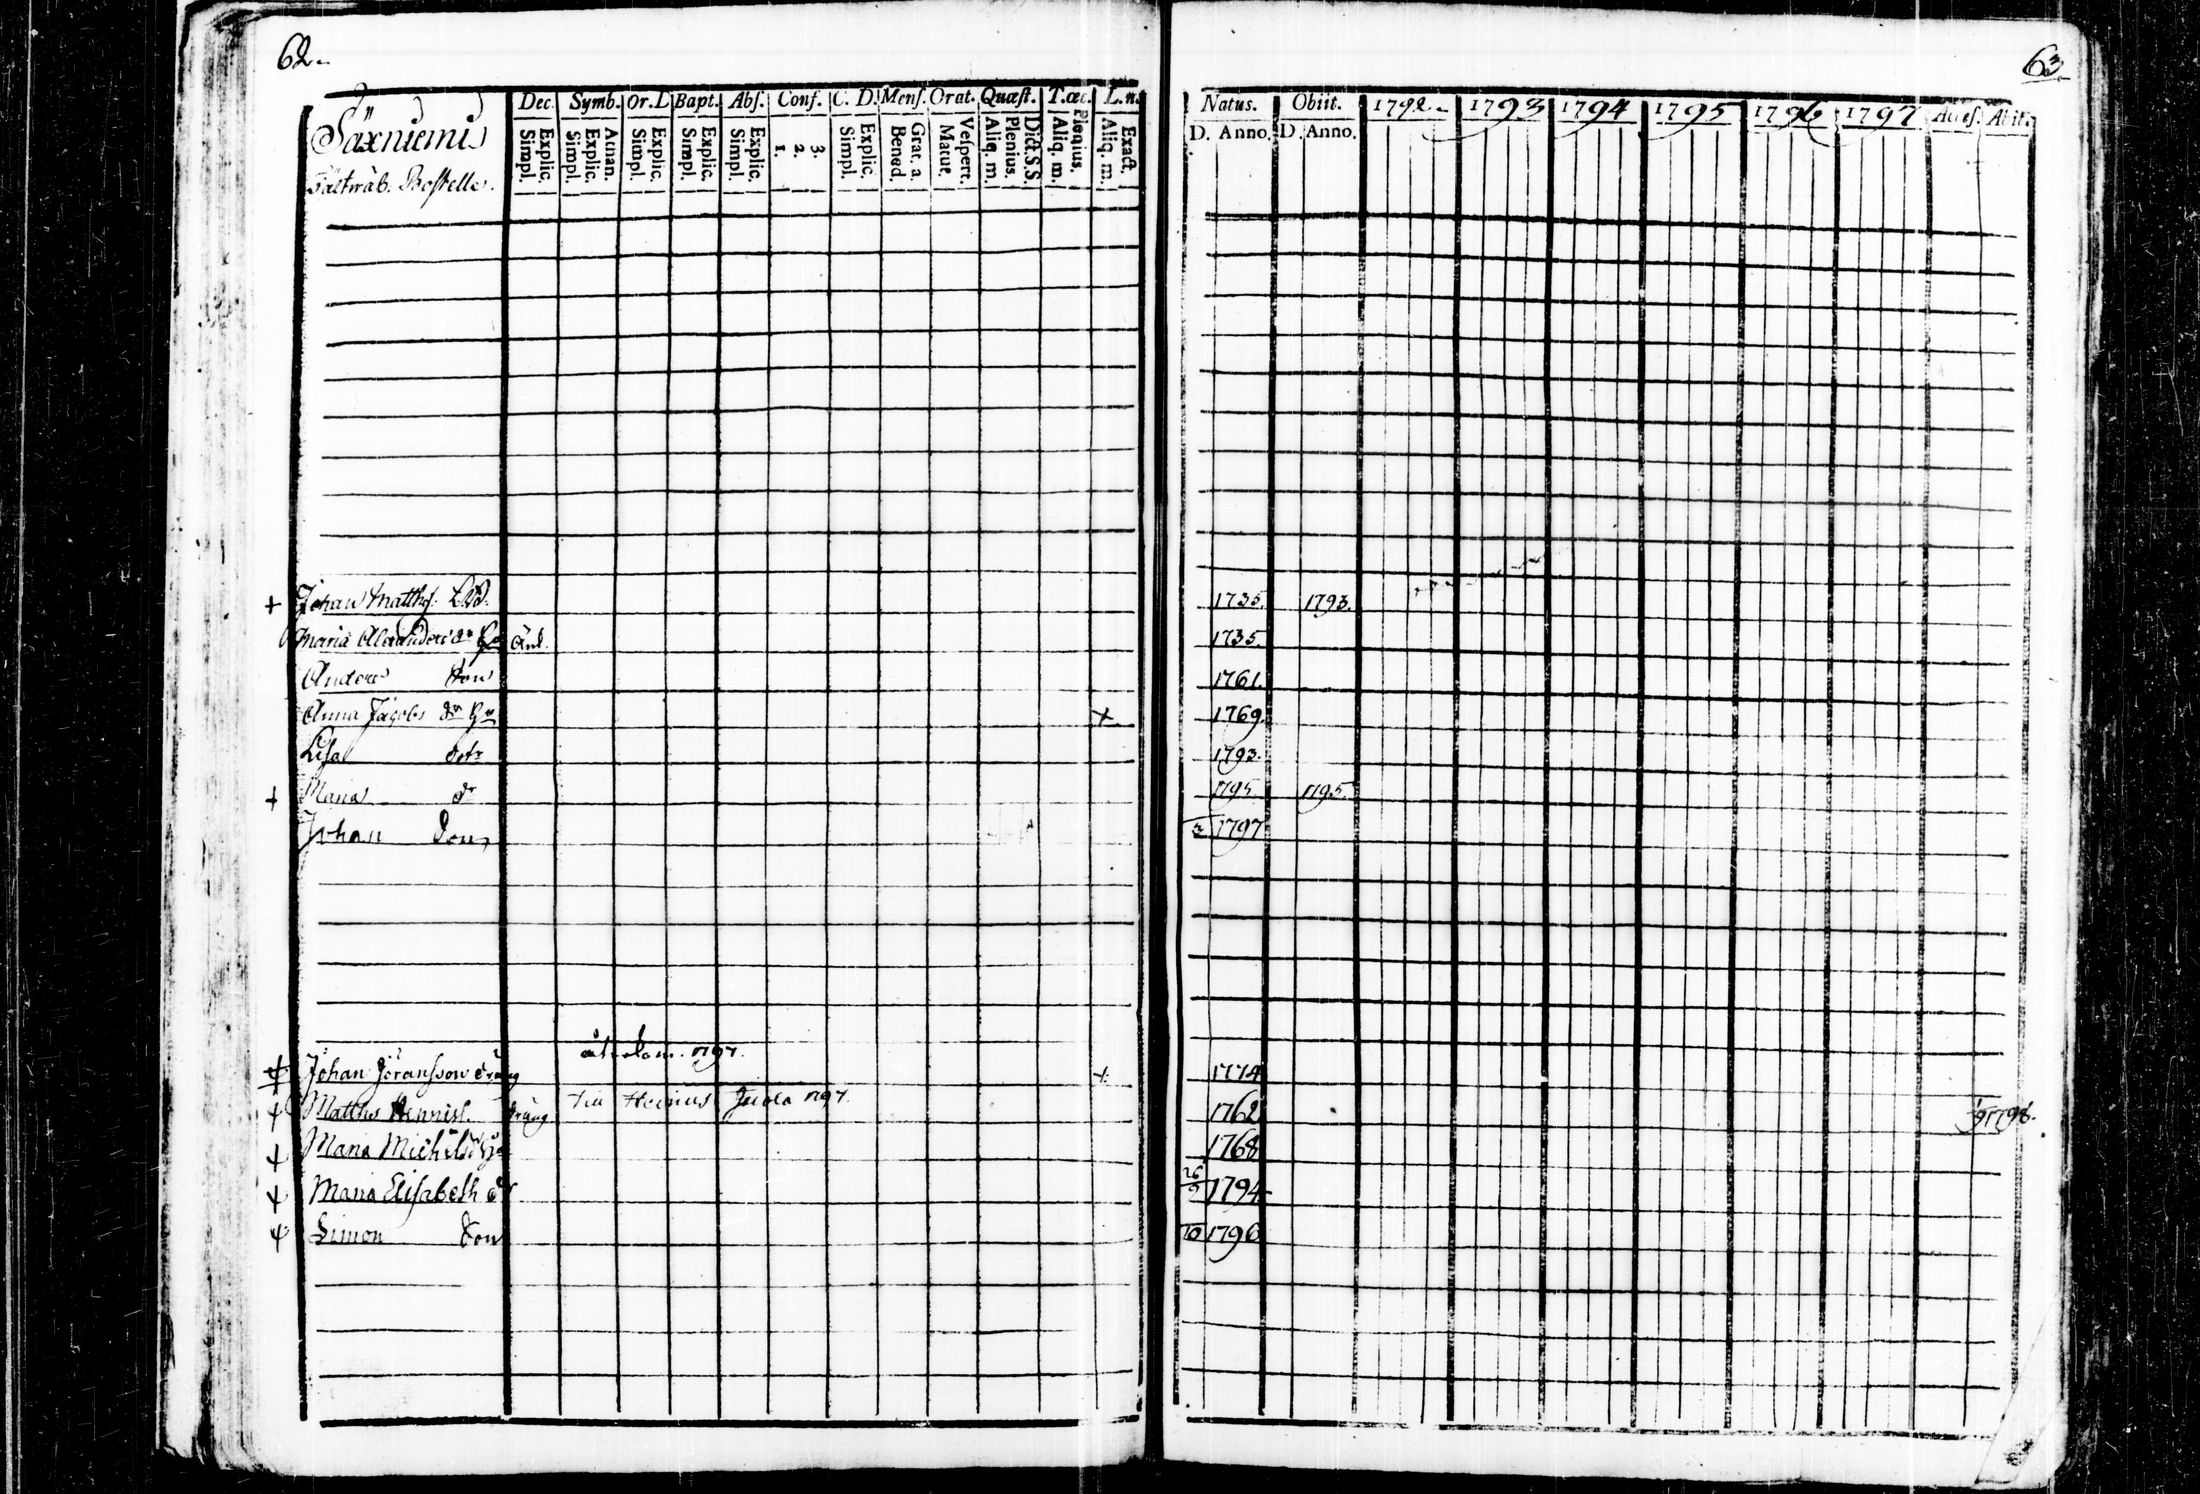 62.
Säxniemi
Bostelle.
Dec. Symb. Or. D Bapt. Abs. Conf. C. D. Mens. Orat. Quæst. T. œc. L. n.
Explic. Simpl. Athan. Explic. Simpl. Explic. Simpl. Explic. Simpl. Explic. Simpl. 3. 2. 1. Explic. Simpl. Grat. a. Bened. Vespert. Matut. Dict. S.S. Plenius. Aliq. m. Plenius. Aliq. m. Exact. Aliq. m.
+ Johan Matths.
Maria Alexanders dr Enk.
Anders Son
Anna Jacobs dr Ha +
Lisa dotr
+ Maria dr
Johan Son
åt. kom. 1797.
Johan Jöransson dräng +
Matths dräng till Heinus 1797.
Maria Michels
Maria Elisabeth dr
Simon Son
63
Natus. Obiit. 1792. 1793 1794 1795 1796 1797 Acces. Abit.
D. Anno. D. Anno.
1735. 1793.
1735.
1761.
1769.
1793.
1795. 1795.
3 1797
1774
1762 1798.
1768
26/9 1794
10 1796